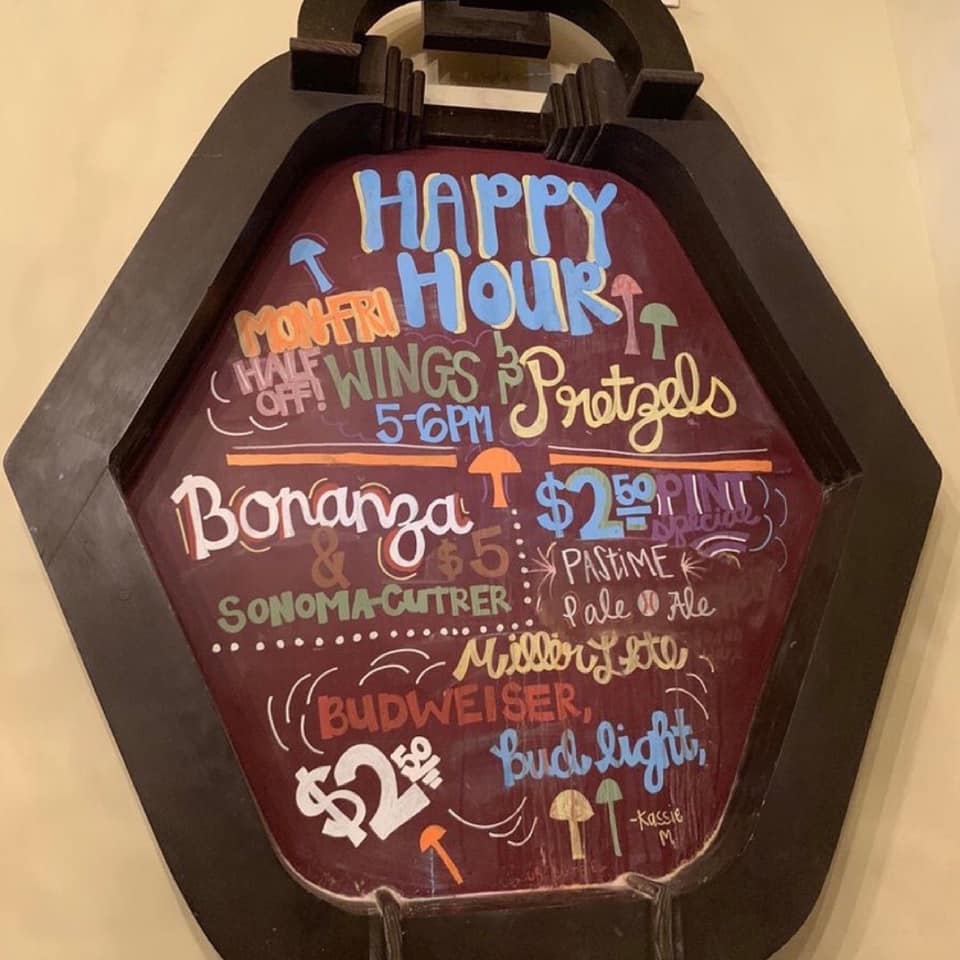 HAPPY
HOUR
MON-FRI
HALF OFF! WINGS & Pretzels
5-6PM
Bonanza
& $5
SONOMA-CUTRER
$2.50 PINT special
PASTIME
Pale Ale
Miller Lite
BUDWEISER,
Bud light,
$2.50
-Kassie
M.